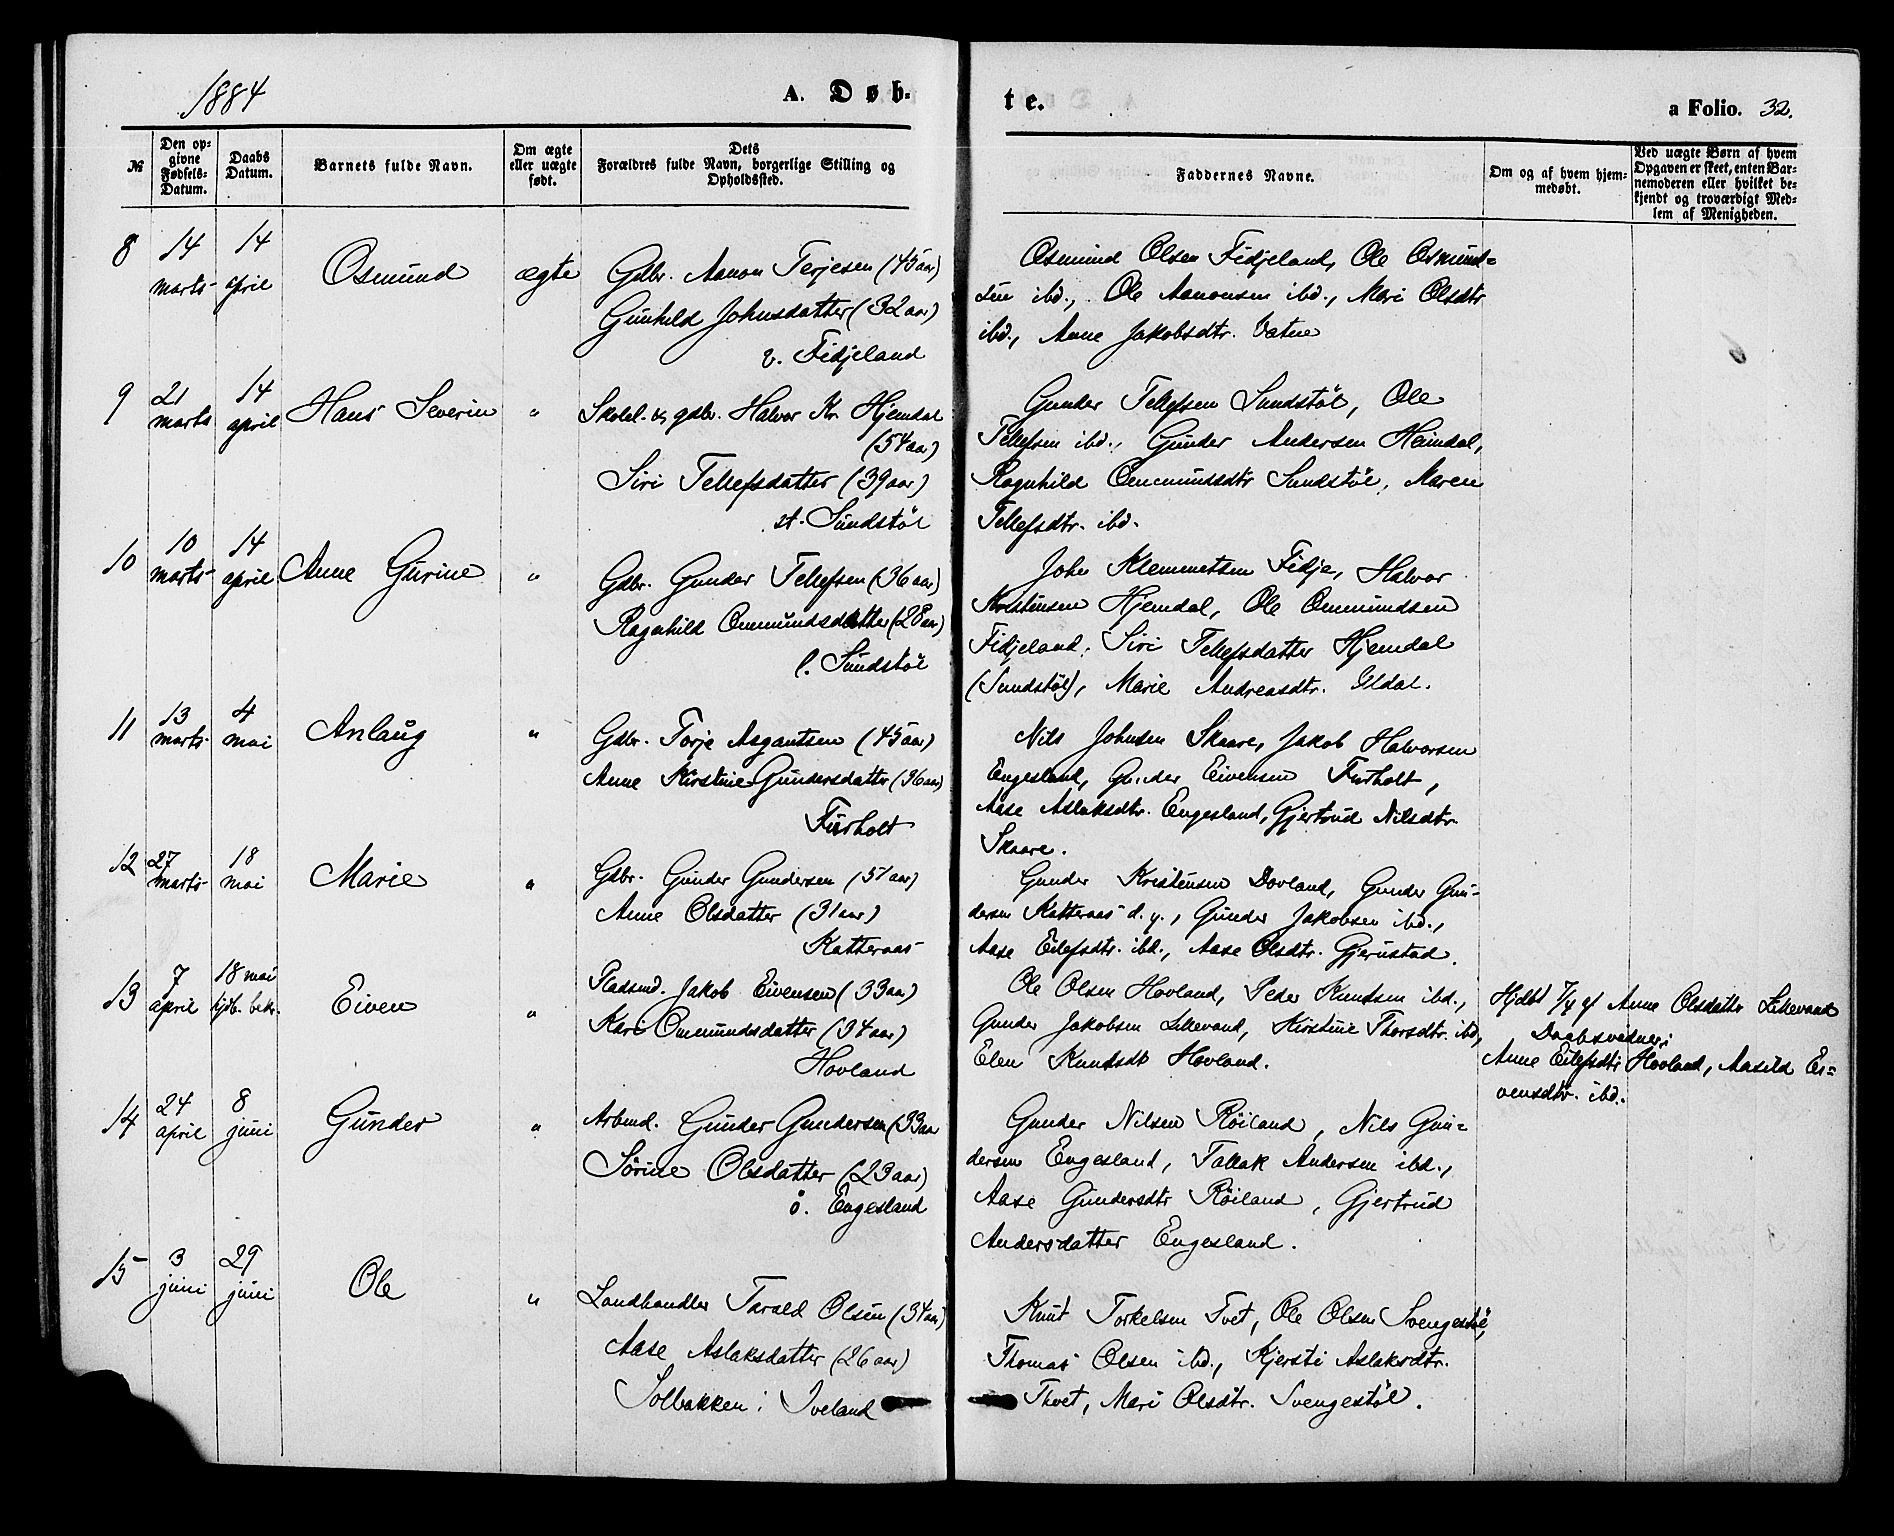 1884
A. Døb-
te.
a Folio. 32.
№
Den op-
givne
Fødsels-
Datum.
Daabs
Datum.
Barnets fulde Navn.
Om ægte
eller uægte
født.
Dets
Forældres fulde Navn, borgerlige Stilling og
Opholdssted.
Faddernes Navne.
Om og af hvem hjem-
medøbt.
Ved uægte Børn af hvem
Opgaven er skeet, enten Bar-
nemoderen eller hvilket be-
kjendt og troværdigt Med-
lem af Menigheden.
8
14
marts
14
april
Osmund
ægte
Gdbr. Aanon Terjesen (45 aar)
Gunhild Johnsdatter (32 aar)
v. Fidjeland
Osmund Olsen Fidjeland, Ole Osmund=
sen ibd., Ole Aanonsen ibd., Mari Olsdtr
ibd., Anne Jakobsdtr. Vatne
9
21
marts
14
april
Hans Severin
"
Skolel. & gdbr. Halvor Kr. Hjemdal
(54 aar)
Siri Tellefsdatter (39 aar)
st. Sundstöl
Gunder Tellefsen Sundstöl, Ole
Tellefsen ibd., Gunder Andersen Heimdal,
Ragnhild Ommundsdtr Sundstöl, Maren
Tellefsdtr. ibd.
10
10
marts
14
april
Anne Gurine
"
Gdbr. Gunder Tellefsen (36 aar)
Ragnhild Ommundsdatter (28 aar)
l. Sundstöl
John Klemmetsen Fidje, Halvor
Kristensen Hjemdal, Ole Ommundsen
Fidjeland, Siri Tellefsdatter Hjemdal
(Sundstöl), Marie Andreasdtr. Eldal.
11
13
marts
4
mai
Anlaug
"
Gdbr. Torje Asgautsen (45 aar)
Anne Kirstine Gundersdatter (36 aar)
Furholt
Nils Johnsen Skaare, Jakob Halvorsen
Engesland, Gunder Eivensen Furholt,
Aase Aslaksdtr. Engesland, Gjertrud Nilsdtr.
Skaare.
12
27
marts
18
mai
Marie
"
Gdbr. Gunder Gundersen (37 aar)
Anne Olsdatter (31 aar)
Katteraas
Gunder Kristensen Dovland, Gunder Gun-
dersen Katteraas d. y., Gunder Jakobsen ibd.,
Aase Eilefsdtr. ibd., Aase Olsdtr. Gjerustad.
13
7
april
18 mai
hjdb. bekr.
Eiven
"
Pladsmd. Jakob Eivensen (33 aar)
Kari Ommundsdatter (34 aar)
Hovland
Ole Olsen Hovland, Peder Knudsen ibd.,
Gunder Jakobsen Lillevand, Kirstine Thorsdtr. ibd,
Elen Knudsdtr Hovland.
Hjdbt 7/4 af Anne Olsdattr Lillevand
Daabsvidner:
Anne Eilefsdtr Hovland, Aasild Ei=
vensdtr. ibd.
14
24
april
8
juni
Gunder
"
Arbmd. Gunder Gundersen (33 aar
Sörine Olsdatter (23 aar)
ö. Engesland
Gunder Nilsen Röiland, Nils Gun=
dersen Engesland, Tallak Andersen ibd.,
Aase Gundersdtr Röiland, Gjertrud
Andersdatter Engesland.
15
3
juni
29
juni
Ole
"
Landhandler Tarald Olsen (34 aar)
Aase Aslaksdatter (26 aar)
Solbakken i Iveland
Knut Torkelsen Tvet, Ole Olsen Svengestöl,
Thomas Olsen ibd., Kjersti Aslaksdtr.
Thvet, Mari Olsdtr. Svengestöl.